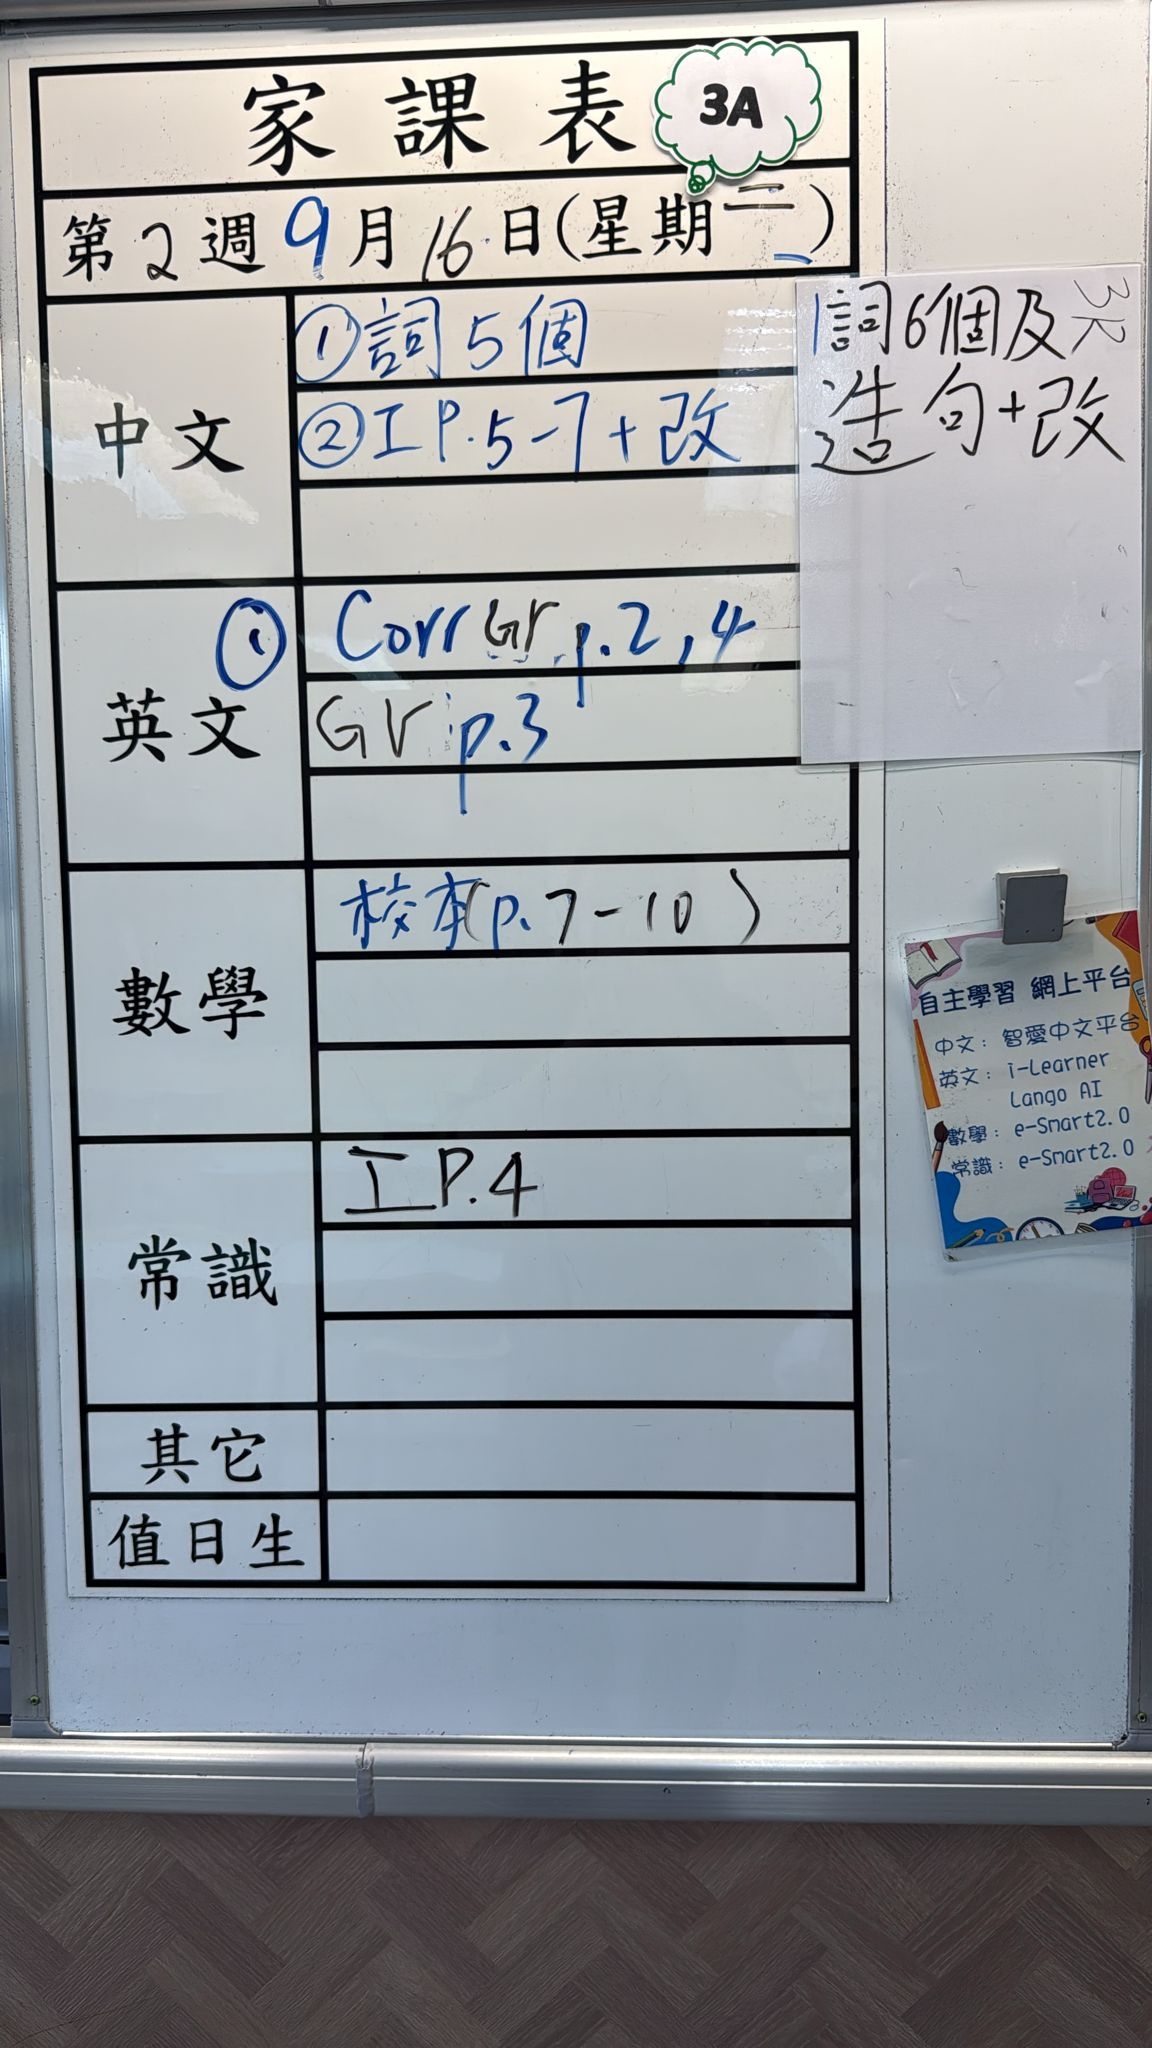 家課表
3A
第2週9月16日(星期二)
中文
①詞5個
②工P.5-7+改
詞6個及
造句+改
英文
① Corr Gr p.2,4
Gr p.3
數學
校本(p.7-10)
常識
工P.4
其它
值日生
自主學習 網上平台
中文：智愛中文平台
英文：i-Learner
Lango AI
數學：e-Smart2.0
常識：e-Smart2.0